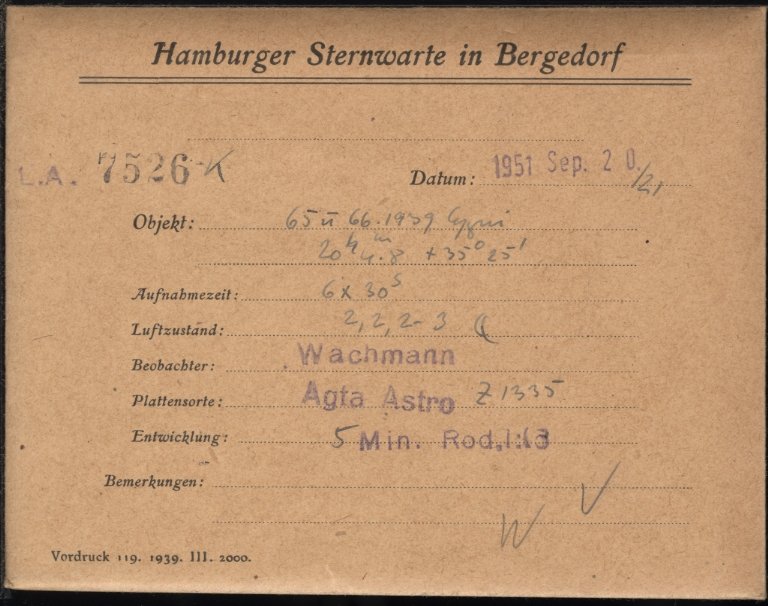 Hamburger Sternwarte in Bergedorf
L.A. 7526-K
Datum: 1951 Sep. 20./21,
Objekt: 65 ū 66.1939 Cygni
20ʰ 4ᵐ.8 +35° 25'
Aufnahmezeit: 6 x 30ˢ
Luftzustand: 2, 2, 2-3 ☾
Beobachter: Wachmann
Plattensorte: Agfa Astro Z 1335
Entwicklung: 5 Min. Rod, 1:
Bemerkungen:
W V
Vordruck 119. 1939. III. 2000.